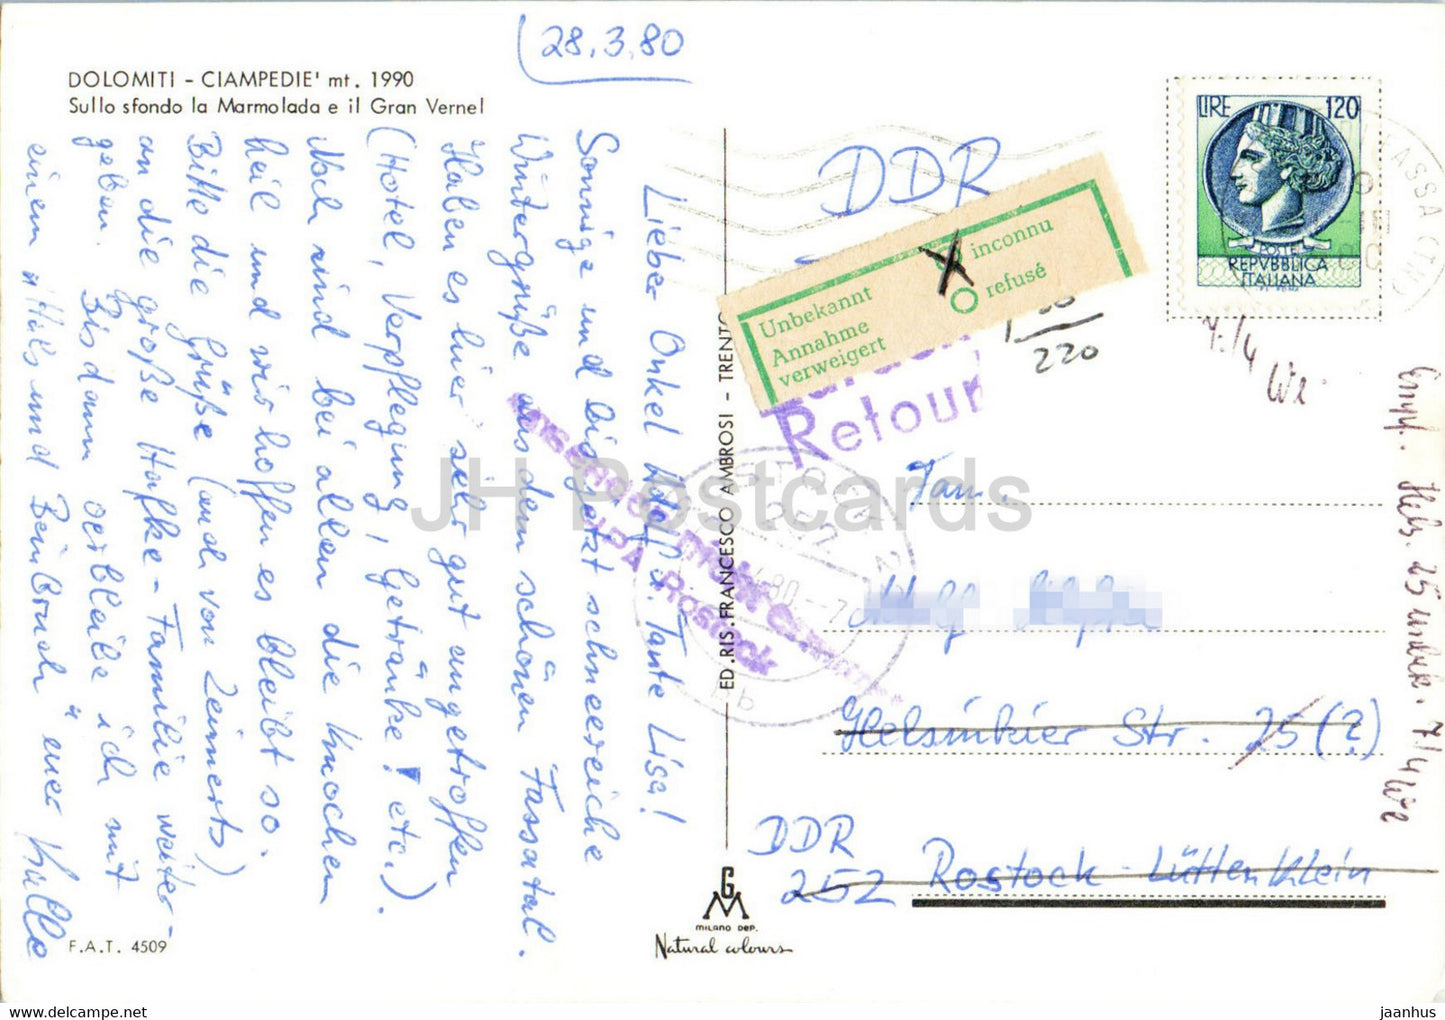 28.3.80
DOLOMITI - CIAMPEDIE' mt. 1990
Sullo sfondo la Marmolada e il Gran Vernel
Lieber Onkel Wolf u. Tante Lisa!
Sonnige und bis jetzt schneereiche
Wintergrüße aus dem schönen Fassatal.
Haben es hier sehr gut angetroffen
(Hotel, Verpflegung, Getränke! etc.).
Noch sind bei allen die Knochen
heil und wir hoffen es bleibt so.
Bitte die Grüße (auch von Zeimerts)
an die große Hofke-Familie weiter-
geben. Bis dann verbleibe ich mit
einem "Hals und Beinbruch" euer Kalle
F.A.T. 4509
ED. RIS. FRANCESCO AMBROSI - TRENTO
GM
MILANO DEP.
Natural colours
LIRE 120
POSTE
REPVBBLICA
ITALIANA
DDR
Unbekannt
Annahme
verweigert
inconnu
refusé
220
Retour
ROSTOCK
2520
80.-7
bb
HPA Rostock
Fam.
Wolf
Helsinkier Str. 25 (?)
DDR
252 Rostock Lütten Klein
7./4 We
Empf. Hels. 25 unbek. 7/4 We
JH Postcards
www.hippostcard.com/store/jh-postcards
jaanhus